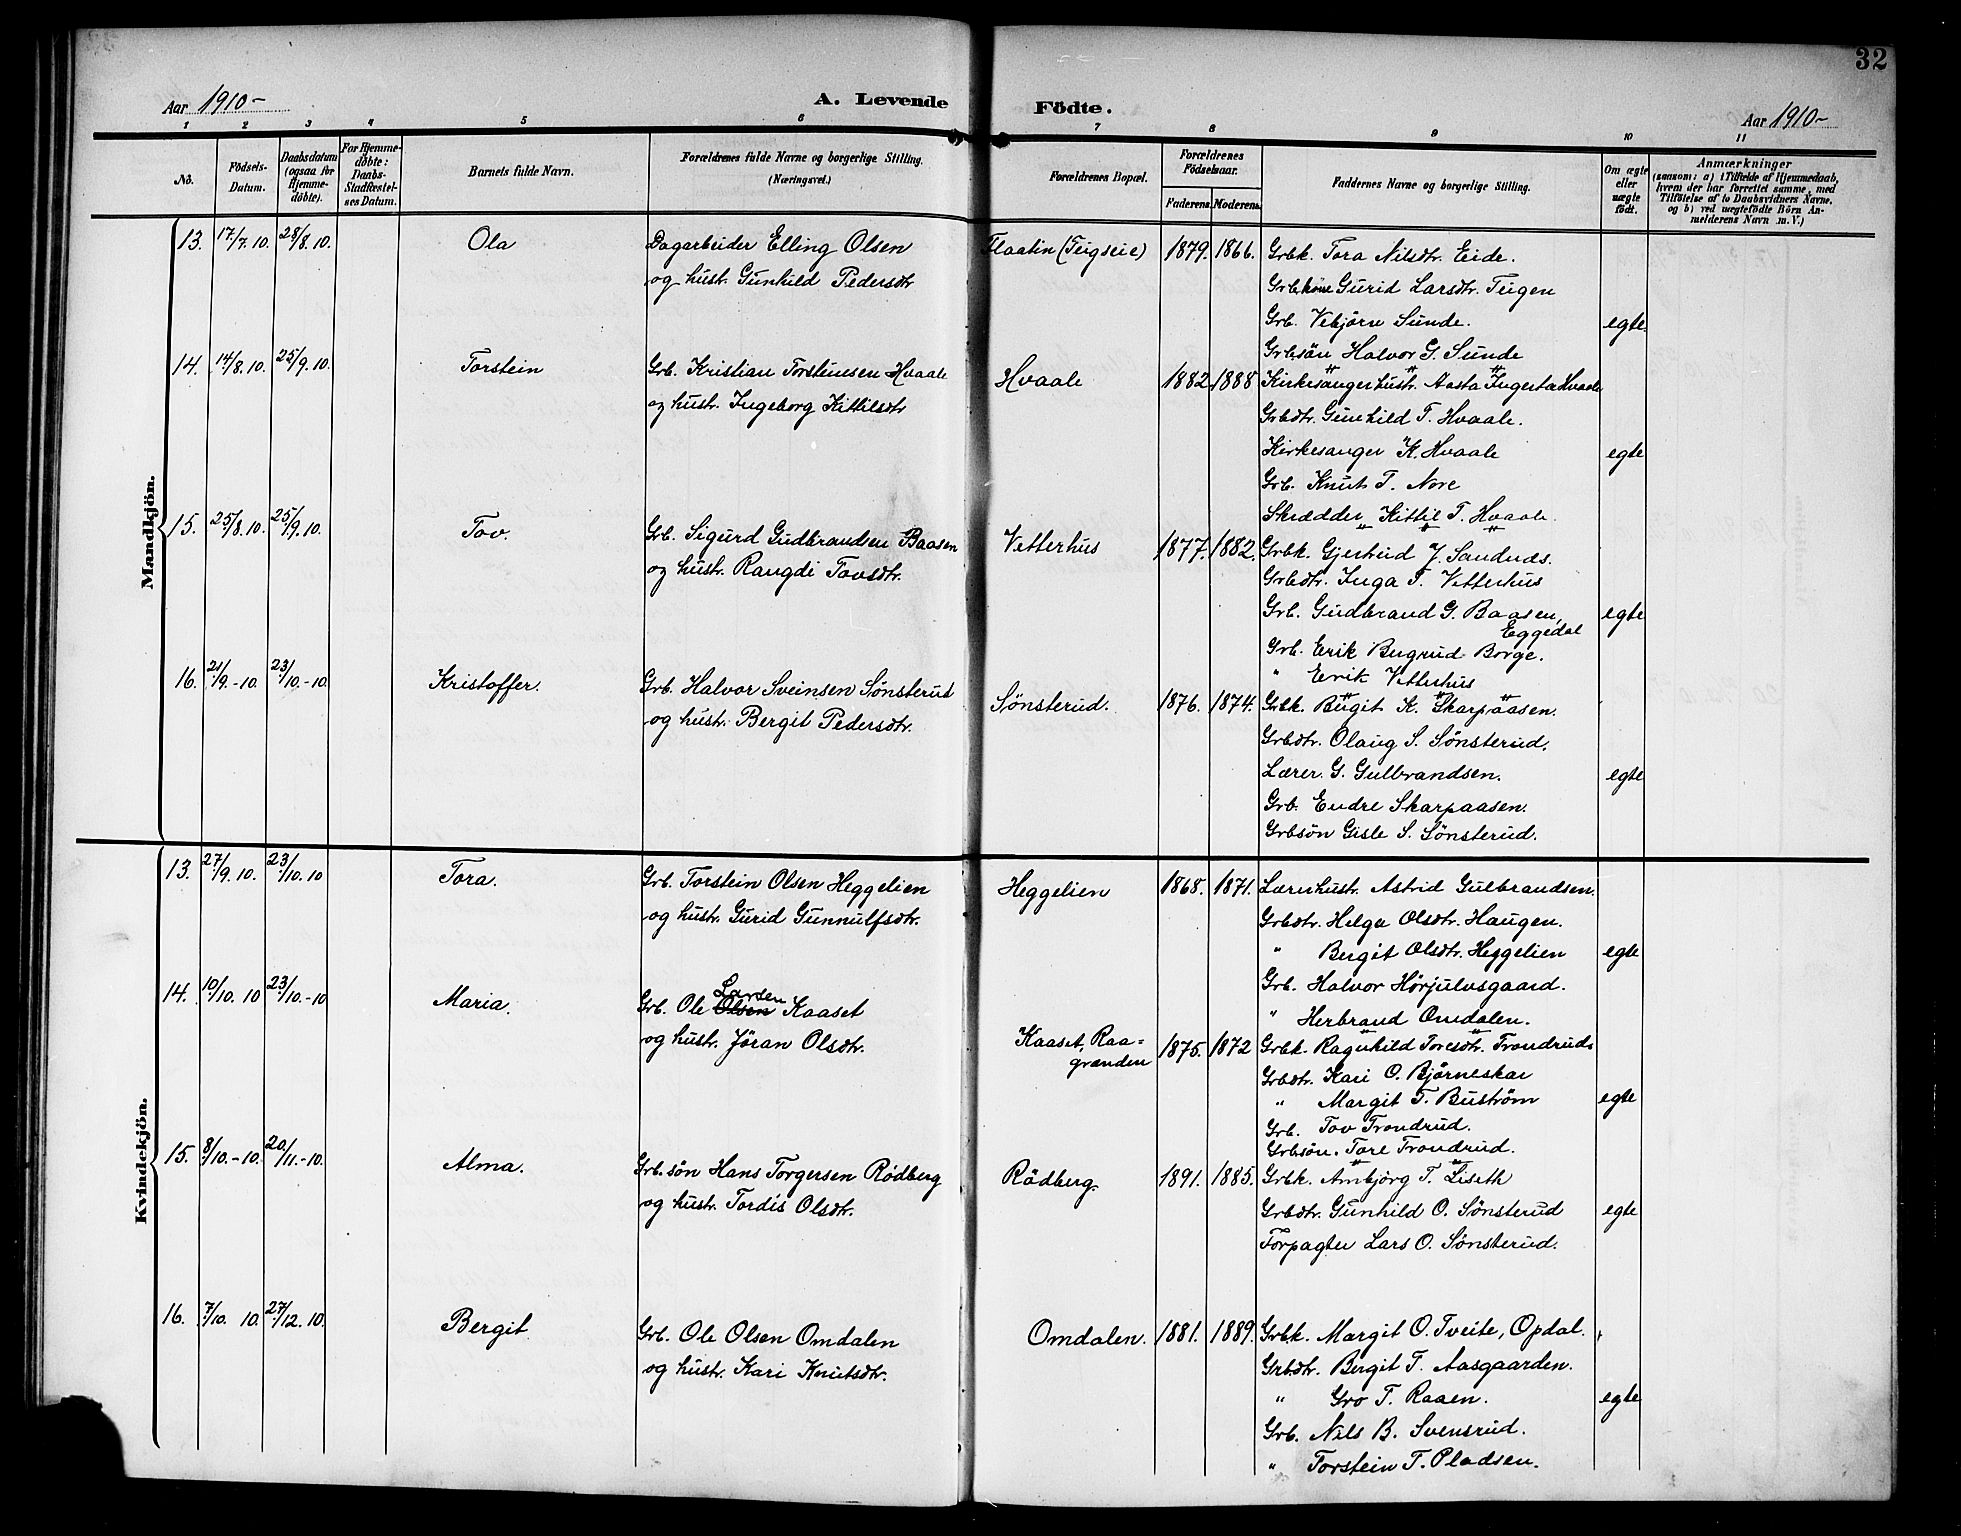 32
Aar 1910-
A. Levende Födte.
Aar 1910-
1 2 3 4 5 6 7 8 9 10 11
No.
Födsels-Datum.
Daabsdatum (ogsaa for Hjemme-döbte).
For Hjemme-döbte: Daabs-Stadfæstel-ses Datum.
Barnets fulde Navn.
Forældrenes fulde Navne og borgerlige Stilling.
(Næringsvei.)
Forældrenes Bopæl.
Forældrenes Födselsaar.
Faderens. Moderens.
Faddernes Navne og borgerlige Stilling.
Om ægte eller uægte födt.
Anmærkninger
(saasom: a) i Tilfælde af Hjemmedaab, hvem der har forrettet samme, med Tilföielse af to Daabsvidners Navne, og b) ved uægtefödte Börn An-melderens Navn m. V.)
Mandkjön.
13. 17/7. 10. 28/8. 10. Ola
Dagarbeider Elling Olsen
og hustr. Gunhild Pedersdtr
Flaatin (Teigseie) 1879. 1866.
Grbk. Tora Nilsdtr. Eide.
Grbkone Gurid Larsdtr. Teigen
Grb. Vebjörn Sunde. egte.
Grbsön Halvor G. Sunde
14. 14/8. 10. 25/9. 10. Torstein
Grb. Kristian Torsteinsen Hvaale
og hustr. Ingeborg Kittilsdtr
Hvaale 1882 1888
Kirkesangerhustr. Aasta Ingerta Hvaale
Grbdtr. Gunhild T. Hvaale.
Kirkesanger K. Hvaale egte
Grb. Knut T. Nore
Skrædder Kittil T. Hvaale
15. 25/8. 10. 25/9. 10. Tov.
Grb. Sigurd Gudbrandsen Baasen
og hustr. Rangdi Tovsdtr.
Vetterhus 1877. 1882.
Grbk. Gjertrud J. Sandnds.
Grbdtr. Inga T. Vetterhus
Grb. Gudbrand G. Baasen, egte
Eggedal
Grb. Erik Bergrud Borge.
" Erik Vetterhus
16. 21/9.-10. 23/10.-10. Kristoffer.
Grb. Halvor Sveinsen Sönsterud
og hustr. Bergit Pedersdtr.
Sönsterud. 1876. 1874.
Grbk. Birgit K. Skarpaasen.
Grbdtr. Olaug S. Sönsterud.
Lærer. G. Gulbrandsen. egte
Grb. Endre Skarpaasen.
Grbsön Gisle S. Sönsterud.
Kvindekjön.
13. 27/9. 10. 23/10. 10 Tora.
Grb. Torstein Olsen Heggelien
og hustr. Gurid Gunnulfsdtr.
Heggelien 1868. 1871.
Lærerhustr. Astrid Gulbrandsen.
Grbdtr. Helga Olsdtr. Haugen.
" Bergit Olsdtr. Heggelien egte
Grb. Halvor Hörjulvsgaard.
" Herbrand Omdalen.
14. 10/10. 10 23/10.-10 Maria.
Grb. Ole Olsen Larsen Kaaset
og hustr. Jöran Olsdtr.
Kaaset, Raa=
grænden 1875. 1872
Grbk. Ragnhild Toresdtr. Trondrud.
Grbdtr. Kari O. Björneskar
" Margit T. Buström egte
Grb. Tov Trondrud.
Grbsön. Tore Trondrud.
15. 8/10.-10. 20/11.-10. Alma.
Grb.sön Hans Torgersen Rödberg
og hustr. Tordis Olsdtr.
Rödberg. 1891. 1885.
Grbk. Ambjörg T. Liseth
Grbdtr. Gunhild O. Sönsterud egte
Forpagter Lars O. Sönsterud.
16. 7/10. 10. 27/12. 10. Bergit
Grb. Ole Olsen Omdalen
og hustr. Kari Knutsdtr.
Omdalen. 1881. 1889.
Grbk. Margit O. Tveite, Opdal.
Grbdtr. Bergit T. Aasgaarden.
" Gro T. Raaen. egte
Grb. Nils B. Svensrud.
" Torstein T. Pladsen.